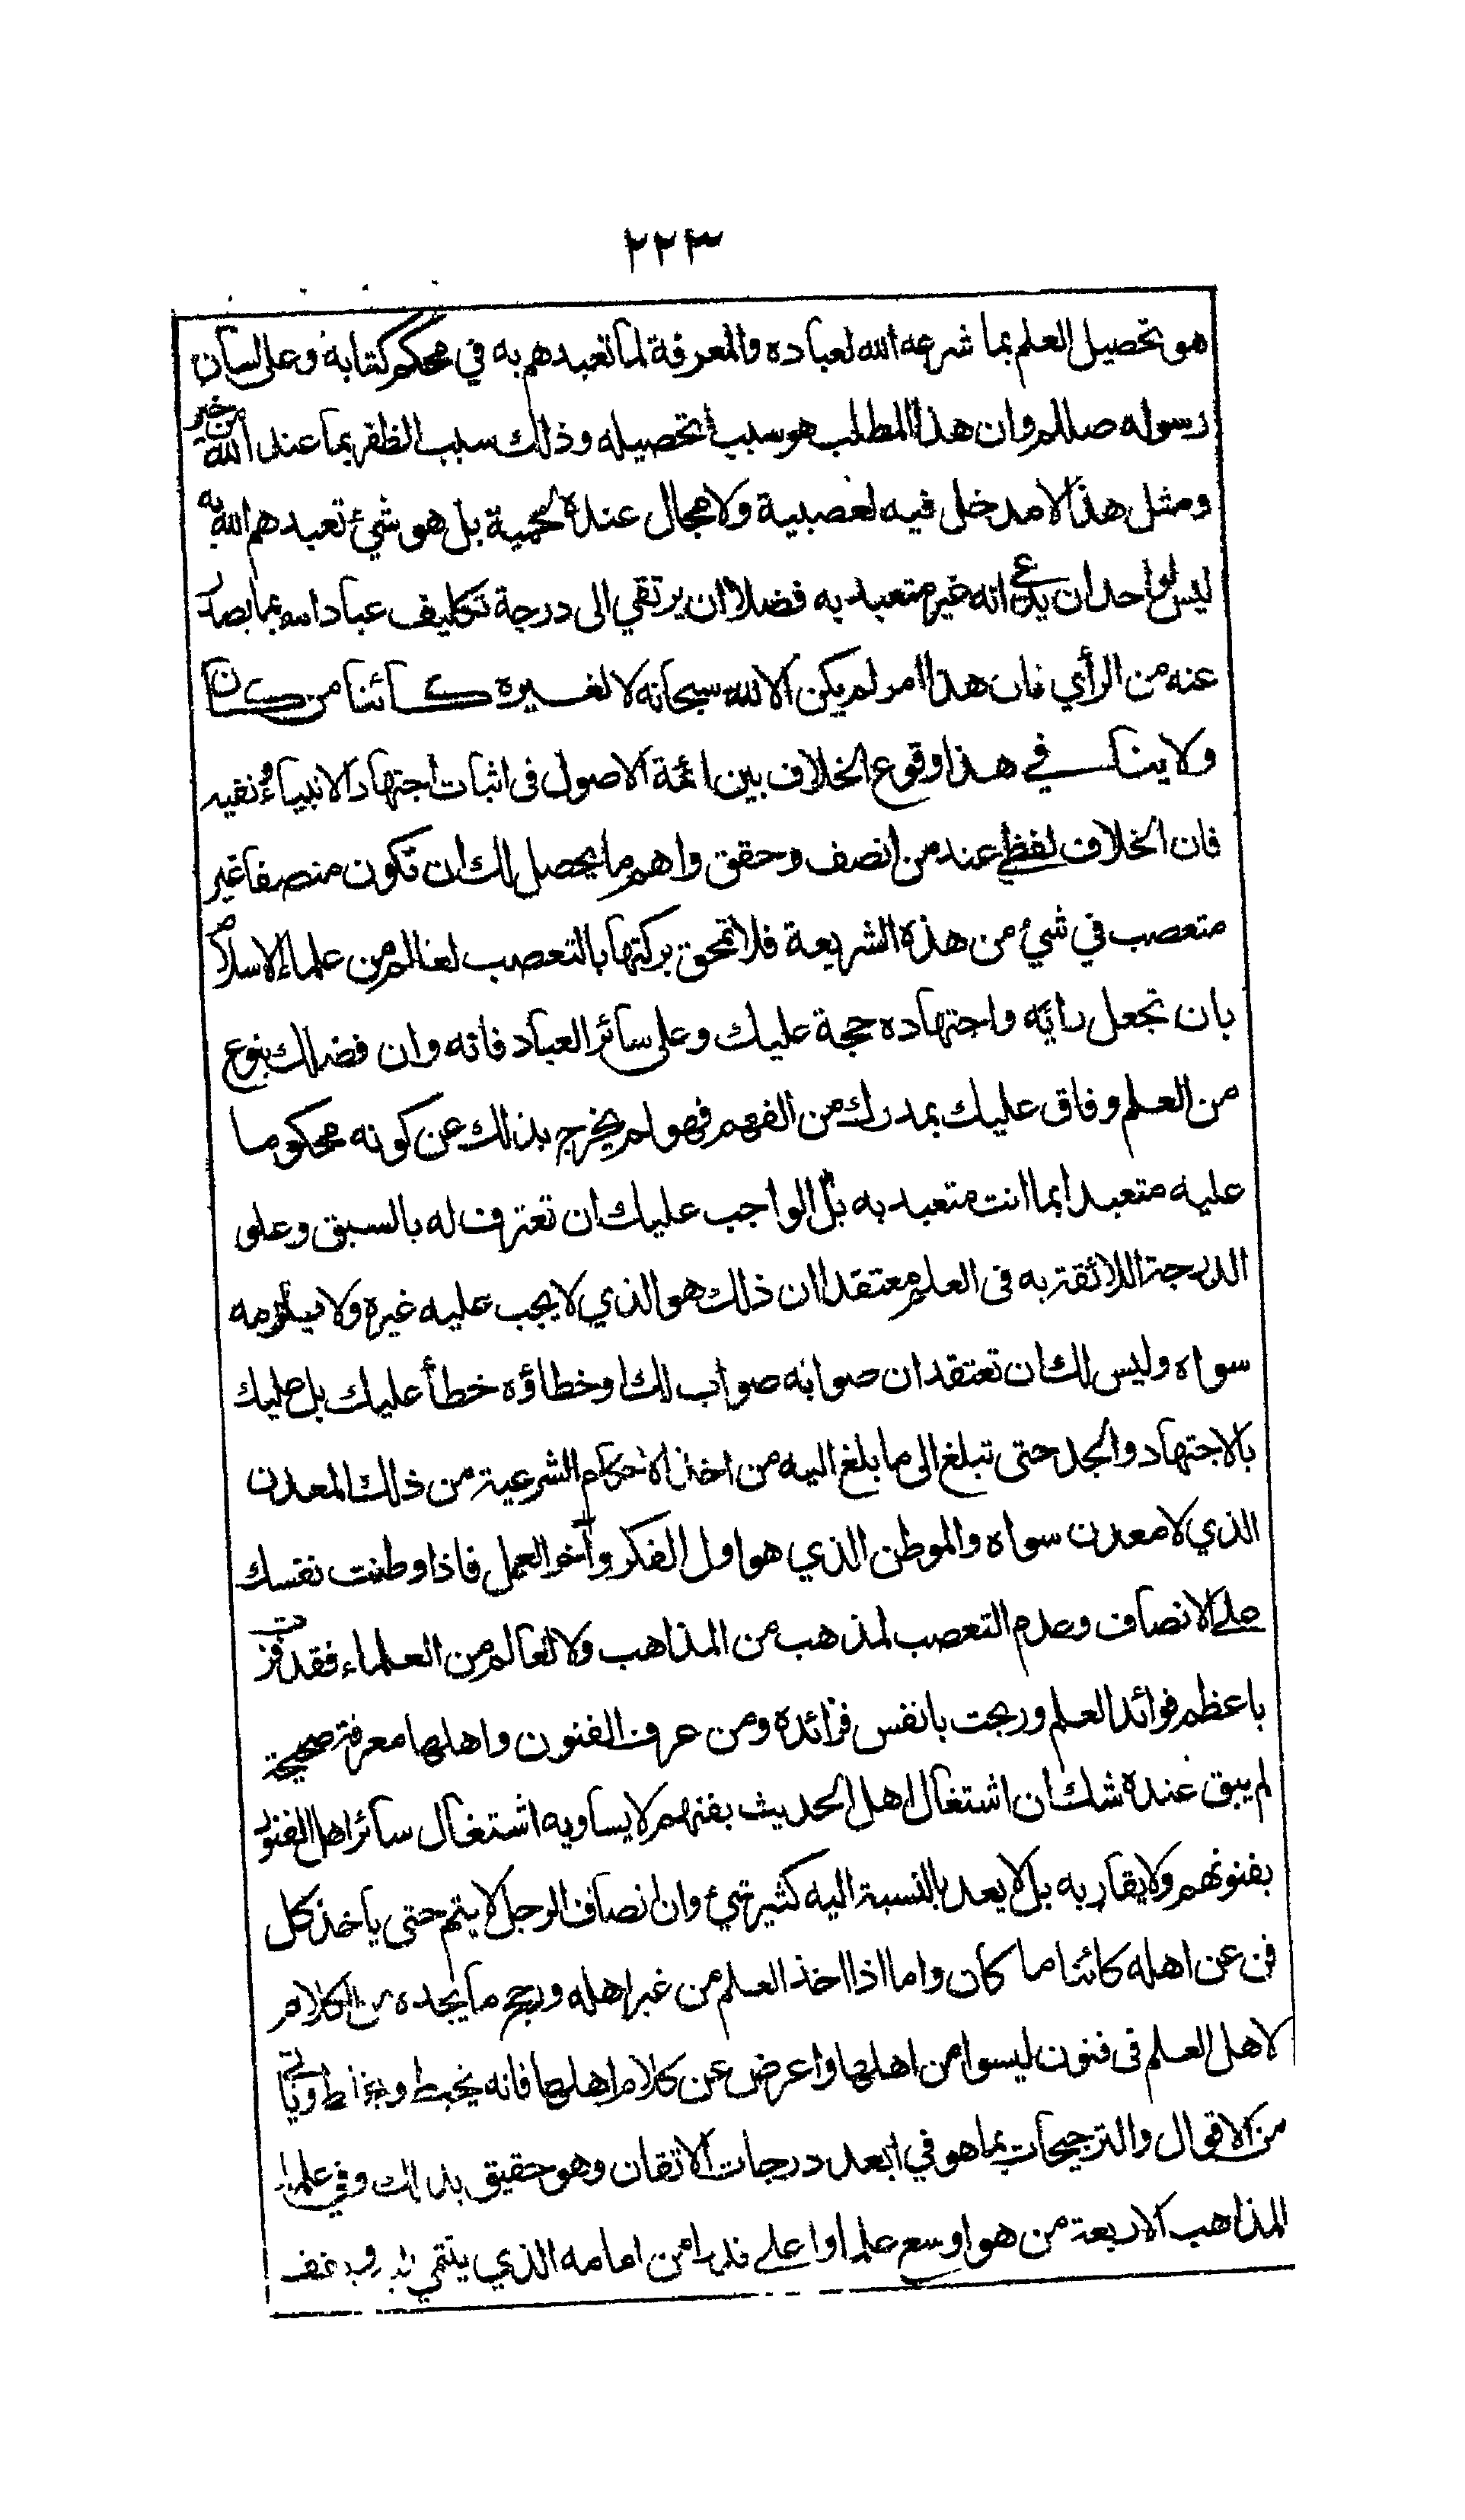 ٢٢٣
هو تحصيل العلم بما شرعه الله لعباده والمعرفة لما تعبدهم به في محكم كتابه وعلى لسان
رسوله صللم وان هذا المطلب هو سبب تحصيله وذلك سبب الظفر بما عند الله من خير
ومثل هذا لا مدخل فيه لعصبية ولا مجال عنده لحمية بل هو شيء تعبدهم الله به
ليس لواحد ان يدعي انه غير متعبد به فضلا ان يرتقي الى درجة تكليف عباد الله بما يصدر
عنه من الرأي فان هذا امر لم يكن الا لله سبحانه لا لغيره كائنا من كان
ولا ينافي هذا وقوع الخلاف بين ائمة الاصول في اثبات اجتهاد الانبياء ونفيه
فان الخلاف لفظي عند من انصف وحقق واهم ما يحصل لك ان تكون منصفا غير
متعصب في شيء من هذه الشريعة فلا تمحق بركتها بالتعصب لعالم من علماء الاسلام
بان تجعل رايه واجتهاده حجة عليك وعلى سائر العباد فانه وان فضلك بنوع
من العلم وفاق عليك بمدرك من الفهم فهو لم يخرج بذلك عن كونه محكوما
عليه متعبدا بما انت متعبد به بل الواجب عليك ان تعترف له بالسبق وعلو
الدرجة اللائقة به في العلم معتقدا ان ذلك هو الذي لا يجب عليه غيره ولا يلزمه
سواه وليس لك ان تعتقد ان صوابه صواب لك وخطاؤه خطأ عليك بل عليك
بالاجتهاد والجد حتى تبلغ الى ما بلغ اليه من اخذ الاحكام الشرعية من ذلك المعدن
الذي لا معدن سواه والموطن الذي هو اول الفكر وآخر العمل فاذا وطنت نفسك
على الانصاف وعدم التعصب لمذهب من المذاهب ولا لعالم من العلماء فقد فزت
باعظم فوائد العلم وربحت بانفس فرائده ومن عرف الفنون واهلها معرفة صحيحة
لم يبق عنده شك ان اشتغال اهل الحديث بفنهم لا يساويه اشتغال سائر اهل الفنون
بفنونهم ولا يقاربه بل لا يعد بالنسبة اليه كثير شيء وان انصاف الرجل لا يتم حتى ياخذ كل
فن عن اهله كائنا ما كان واما اذا اخذ العلم من غير اهله ورجح ما يجده من الكلام
لاهل العلم في فنون ليسوا من اهلها واعرض عن كلام اهلها فانه يخبط ويخلط وياتي
من الاقوال والترجيحات بما هو في ابعد درجات الاتقان وهو حقيق بذلك وفي علماء
المذاهب الاربعة من هو اوسع علما واعلى قدرا من امامه الذي ينتمي